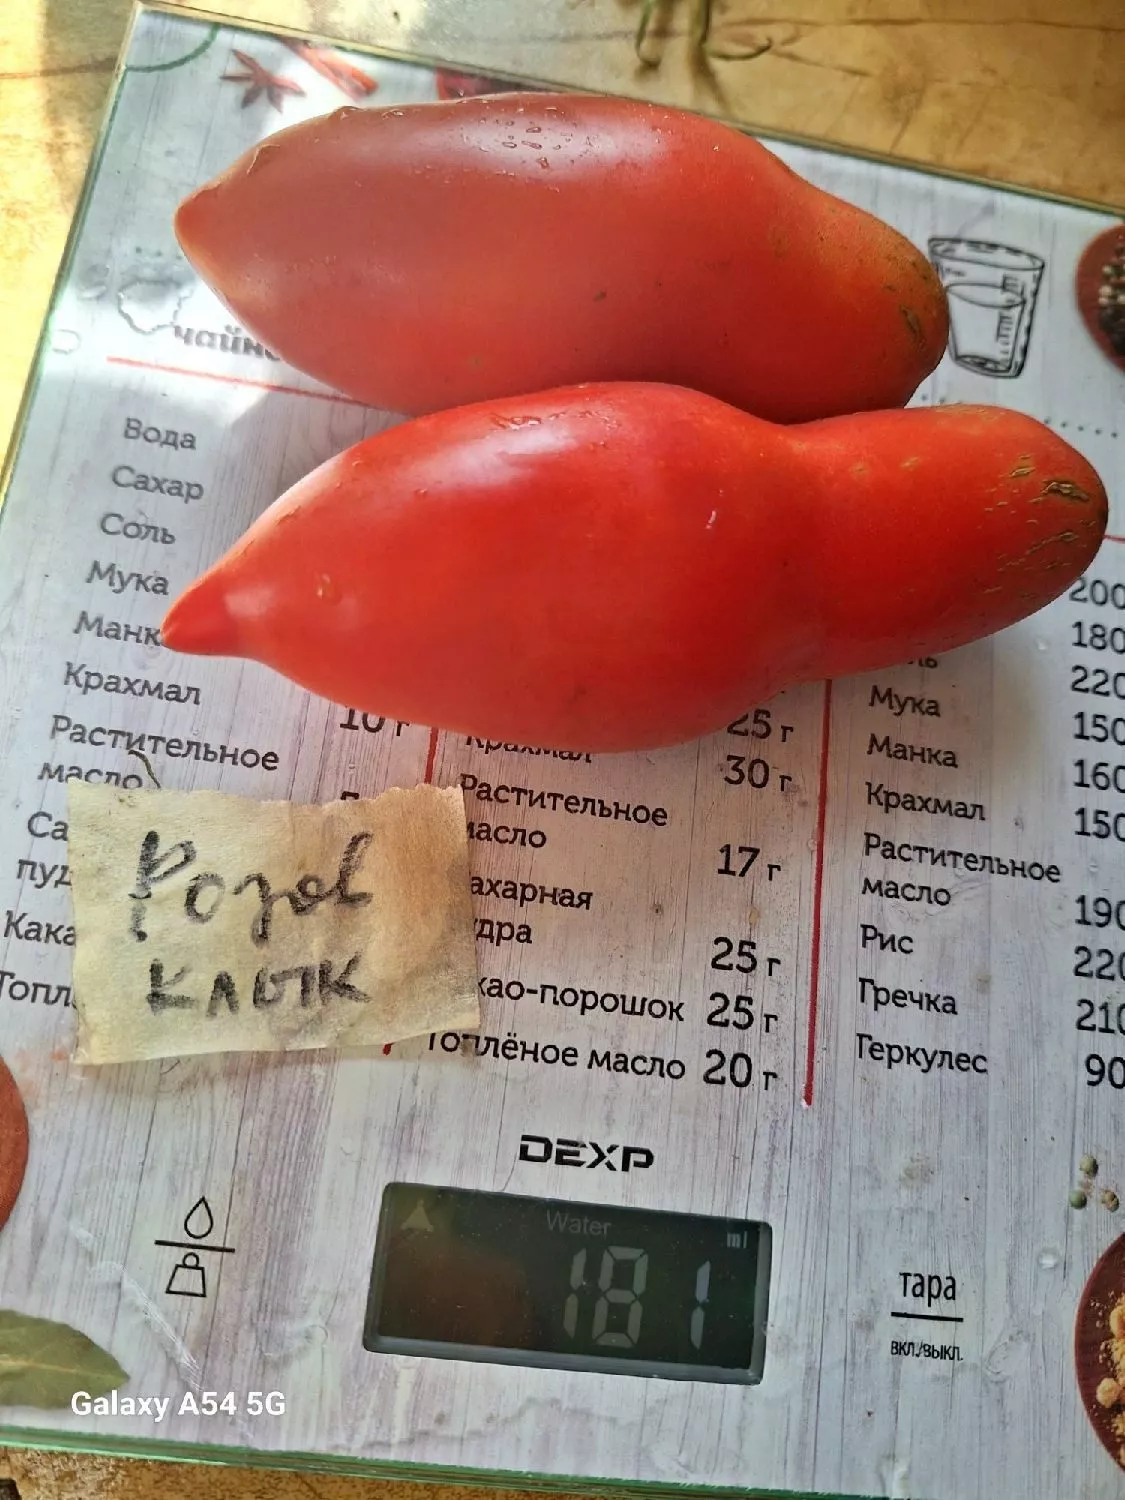 чайн
Вода
Сахар
Соль
Мука
Манк
Крахмал
10 г
Растительное
масло
Са
пуд
Кака
Топл
25 г
Крахмал
30 г
Растительное
масло
17 г
ахарная
удра
25 г
као-порошок 25 г
Топлёное масло 20 г
200
ль 180
220
Мука 150
Манка 160
Крахмал 150
Растительное
масло 190
Рис 220
Гречка 210
Геркулес 90
Розов
клык
DEXP
Water
ml
181
тара
вкл./выкл.
Galaxy A54 5G